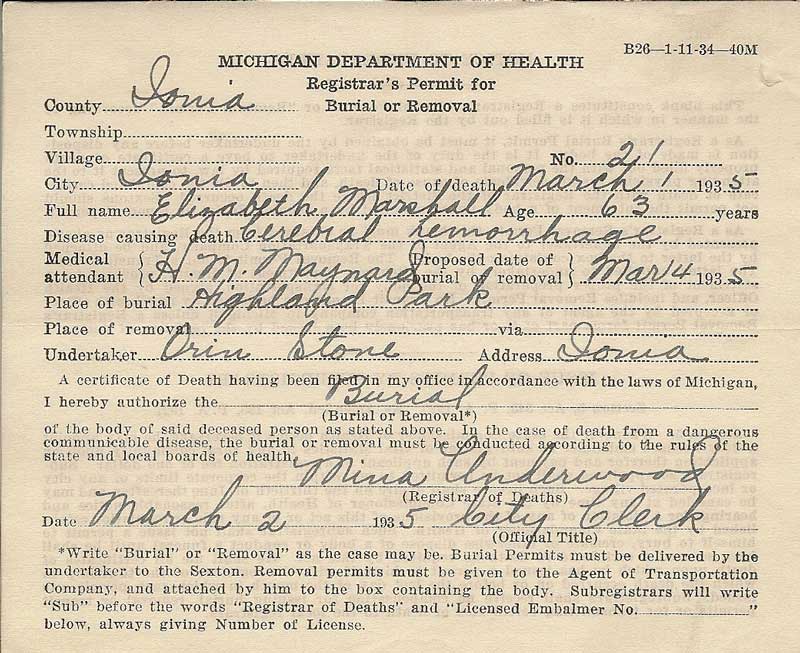 B26—1-11-34—40M
MICHIGAN DEPARTMENT OF HEALTH
Registrar's Permit for
County Ionia Burial or Removal
Township
Village No. 21
City Ionia Date of death March 1 1935
Full name Elizabeth Marshall Age 63 years
Disease causing death Cerebral hemorrhage
Medical attendant H. M. Maynard Proposed date of burial or removal Mar 4 1935
Place of burial Highland Park
Place of removal via
Undertaker Orin Stone Address Ionia
A certificate of Death having been filed in my office in accordance with the laws of Michigan,
I hereby authorize the Burial
(Burial or Removal*)
of the body of said deceased person as stated above. In the case of death from a dangerous
communicable disease, the burial or removal must be conducted according to the rules of the
state and local boards of health.
Mina Underwood
(Registrar of Deaths)
Date March 2 1935 City Clerk
(Official Title)
*Write "Burial" or "Removal" as the case may be. Burial Permits must be delivered by the
undertaker to the Sexton. Removal permits must be given to the Agent of Transportation
Company, and attached by him to the box containing the body. Subregistrars will write
"Sub" before the words "Registrar of Deaths" and "Licensed Embalmer No. "
below, always giving Number of License.